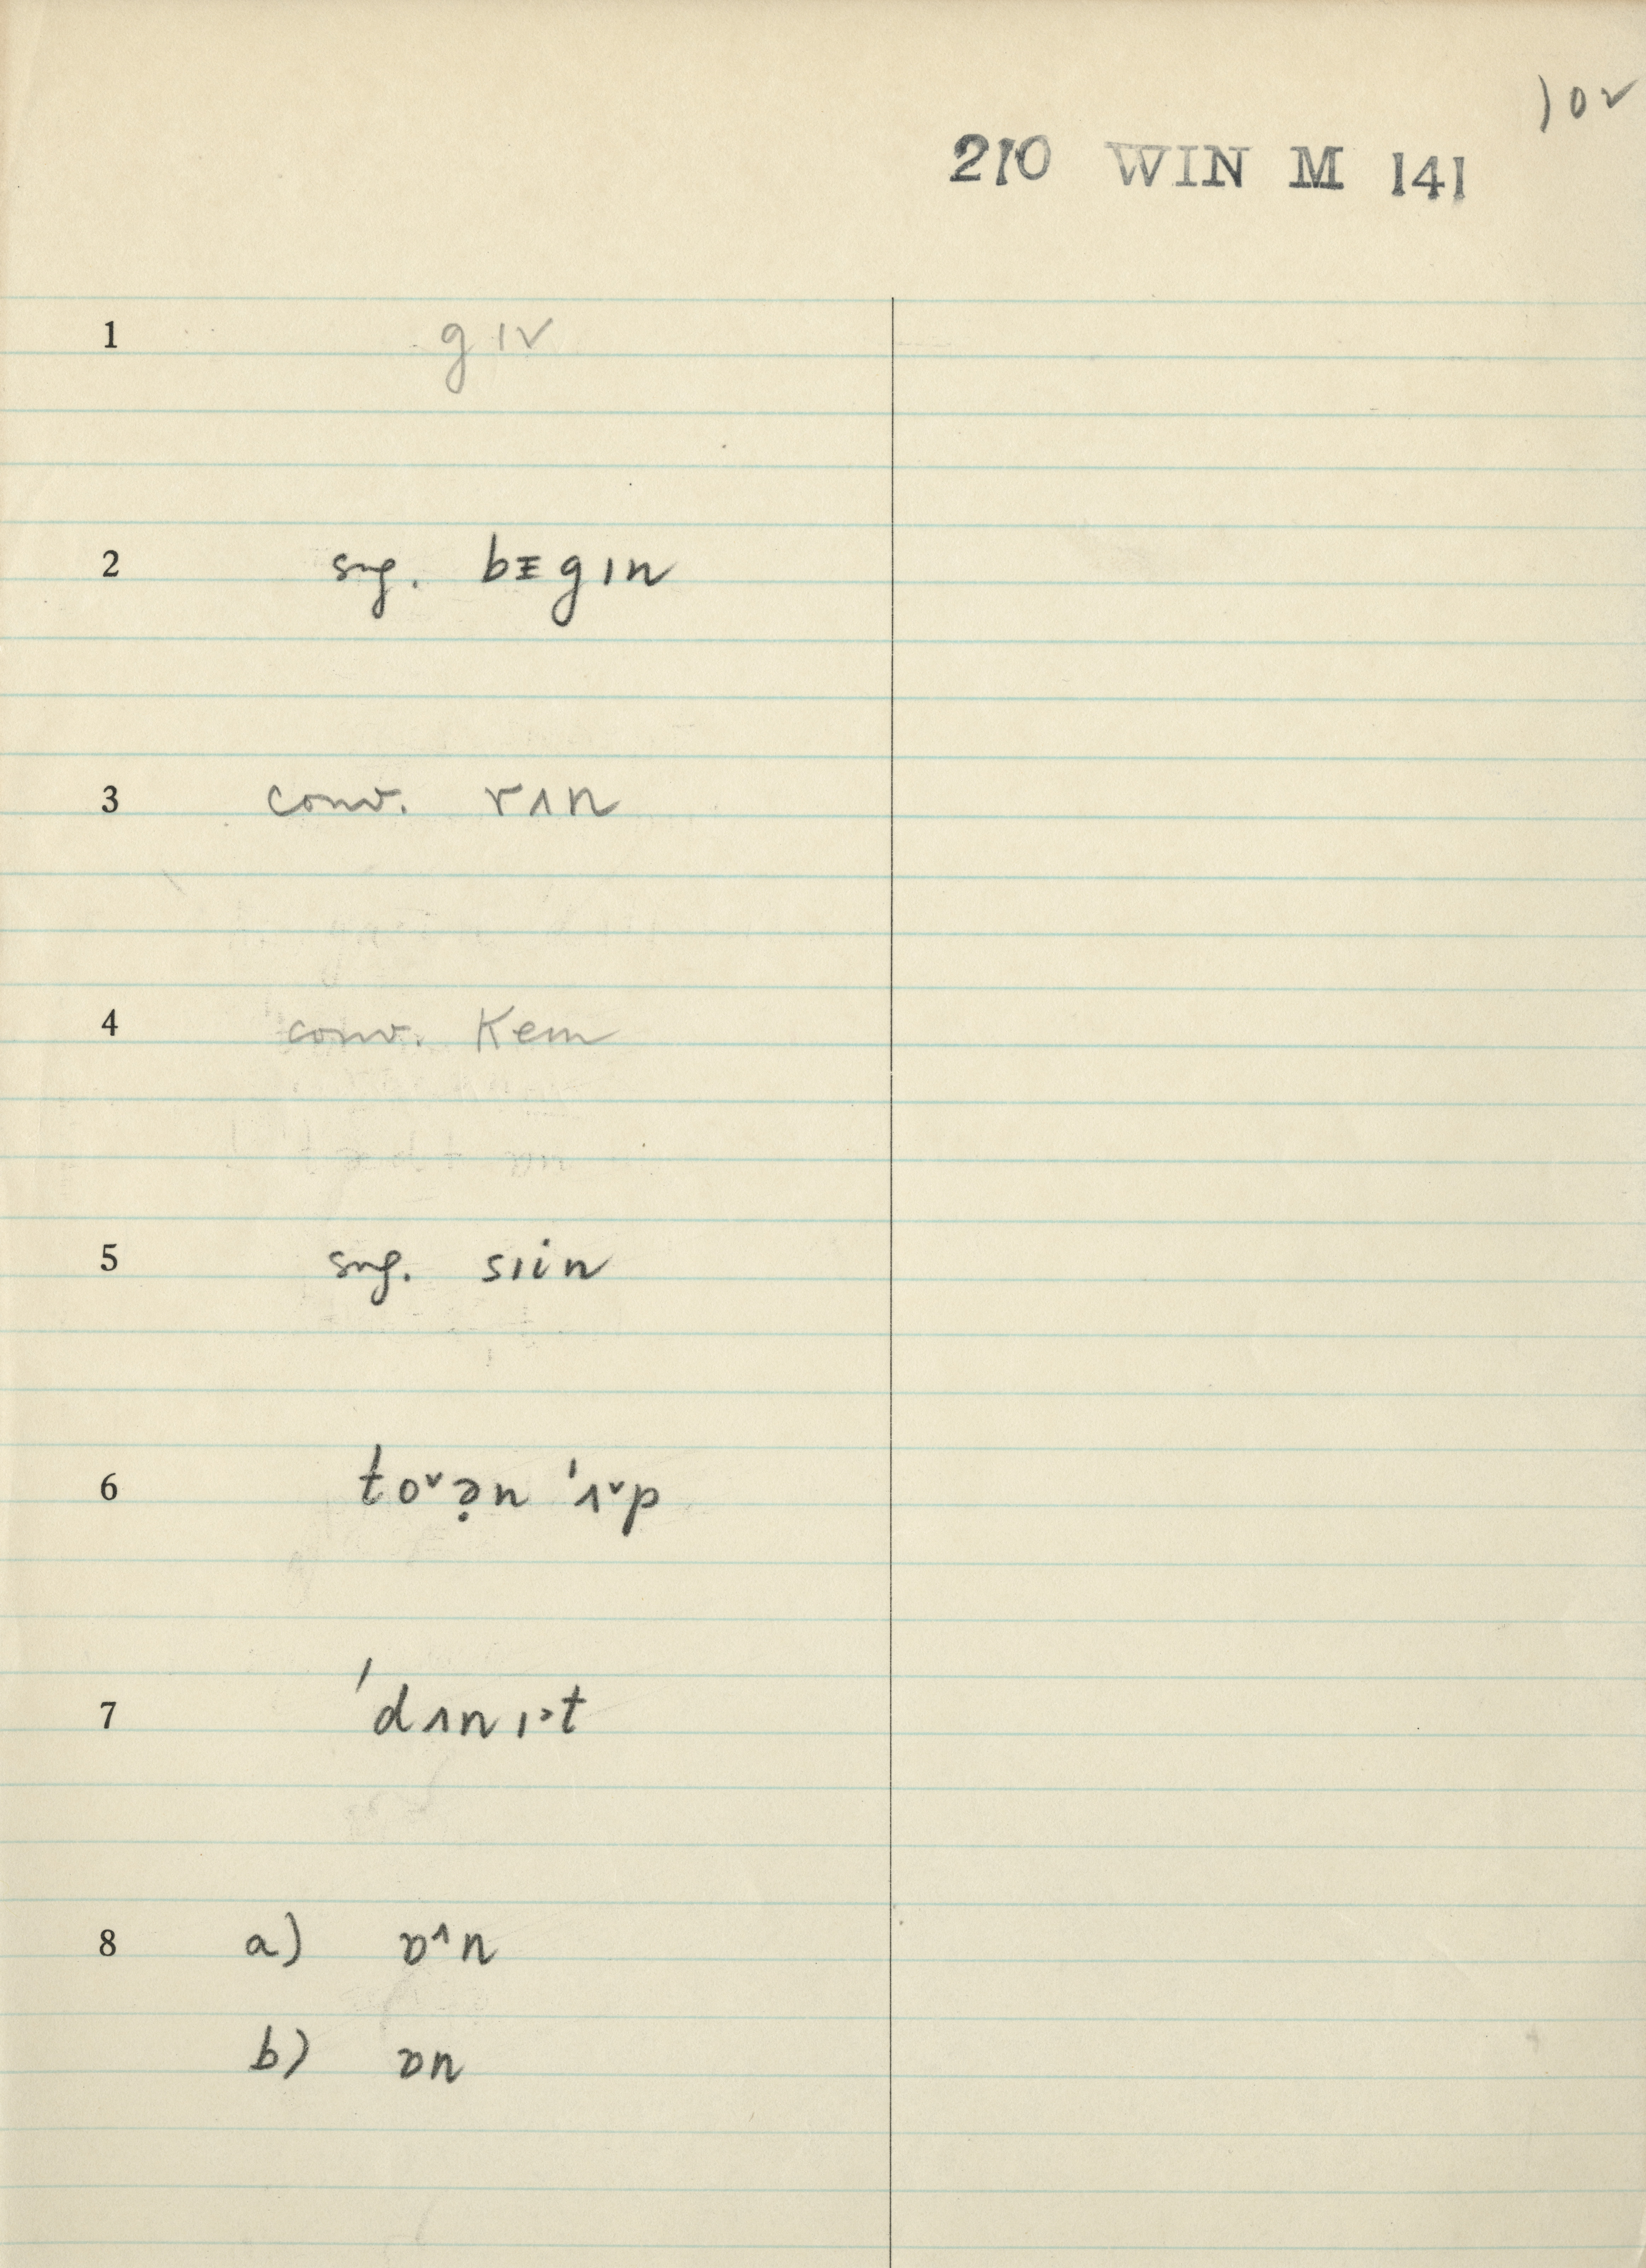 10ᵛ
210 WIN M 141
1 gɪv
2 sug. bᵻgɪn
3 conv. rʌn
4 conv. kem
5 sug. sɪin
6 to˅ə̣n 'ʌ˅p
7 'dʌnɪ˃t
8 a) ɒ˄n
b) ɒn